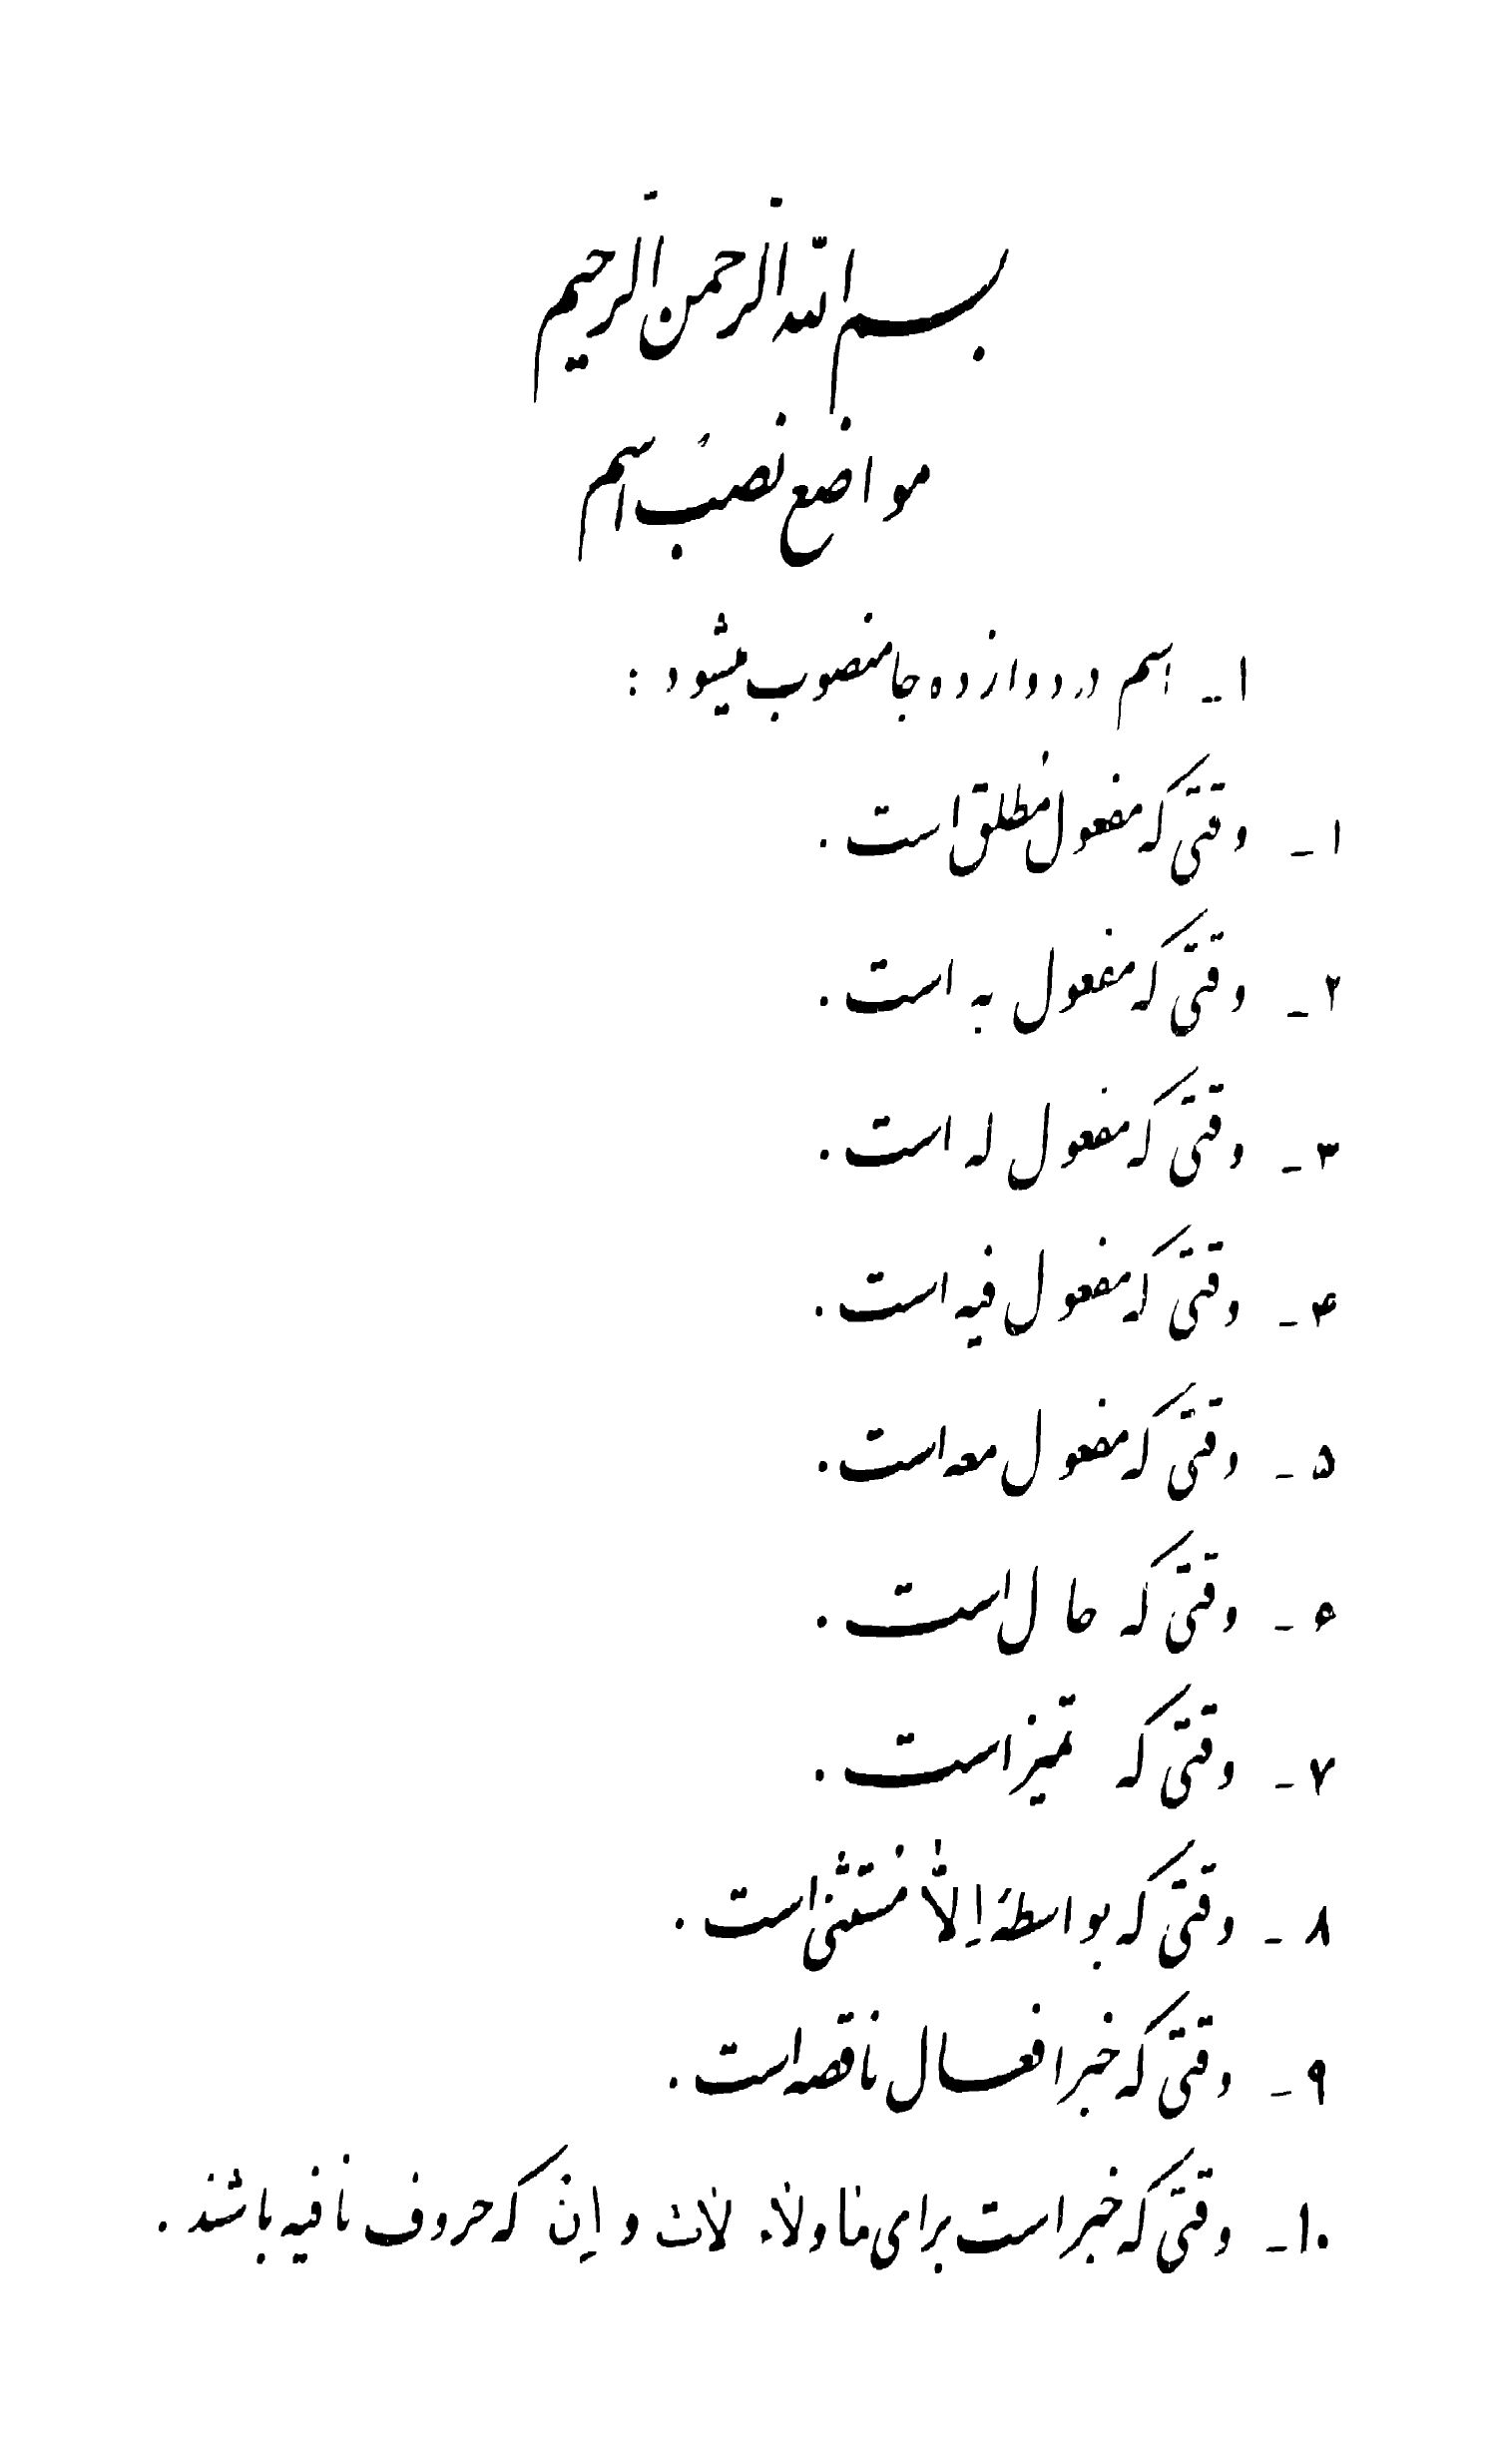 بسم اللّه الرحمن الرحیم
مواضع نصب اسم
۱ـ اسم در دوازده جا منصوب میشود :
۱ـ وقتی که مفعول مطلق است .
۲ـ وقتی که مفعول به است .
۳ـ وقتی که مفعول له است .
۴ـ وقتی که مفعول فیه است .
۵ـ وقتی که مفعول معه است .
۶ـ وقتی که حال است .
۷ـ وقتی که تمیز است .
۸ـ وقتی که بواسطهٔ اِلّا مستثنی است .
۹ـ وقتی که خبر افعال ناقصه است .
۱۰ـ وقتی که خبر است برای ما و لا، لات و اِن که حروف نافیه باشند .